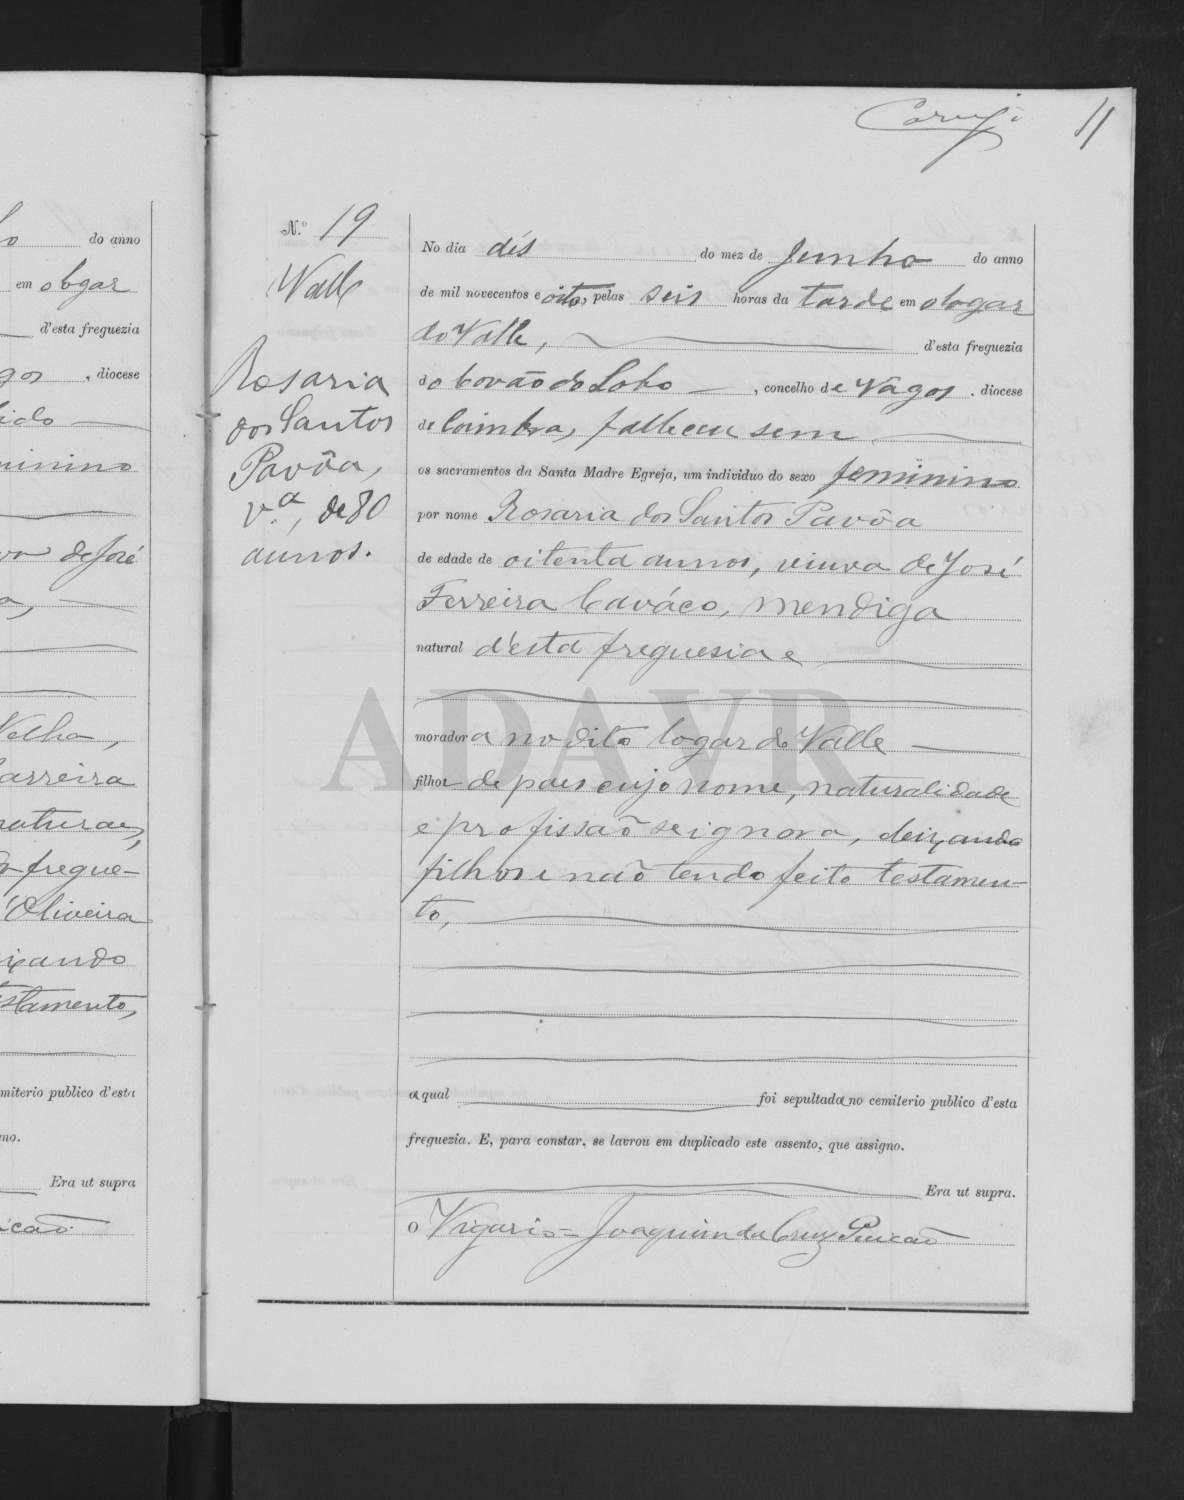 11
N.º 19
Valle
Rosaria
dos Santos
Pavôa,
v.ª, de 80
annos.
No dia dés do mez de Junho do anno
de mil novecentos e oito, pelas seis horas da tarde em o logar
do Valle, d'esta freguezia
do Covão do Lobo, concelho de Vagos, diocese
de Coimbra, falleceu sem
os sacramentos da Santa Madre Egreja, um individuo do sexo feminino
por nome Rosaria dos Santos Pavôa
de edade de oitenta annos, viuva de José
Ferreira Caváco, mendiga
natural d'esta freguesia e
moradora no dito logar do Valle
filha de paes cujo nome, naturalidade
e profissaõ se ignora, deixando
filhos e naõ tendo feito testamen-
to,
a qual foi sepultada no cemiterio publico d'esta
freguezia. E, para constar, se lavrou em duplicado este assento, que assigno.
Era ut supra.
O Vigario = Joaquim da Cruz
ADAVR
do anno
em o logar
d'esta freguezia
, diocese
de José
Velha,
Oliveira
miterio publico d'esta
Era ut supra